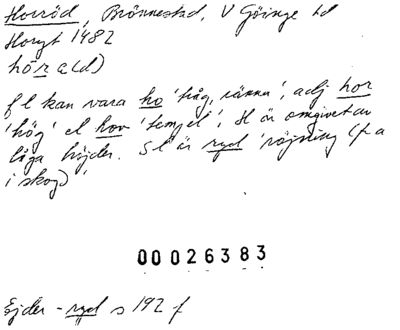 Horröd, Brönnestad, V Göinge hd
Horyt 1482
hörə(d)
fl kan vara ho 'tråg, ränna', adj hor
'hög' el hov 'tempel'; H är omgivet av
låga höjder. Sl är ryd 'röjning (f a
i skog)'
00026383
Ejder-ryd s 192 f